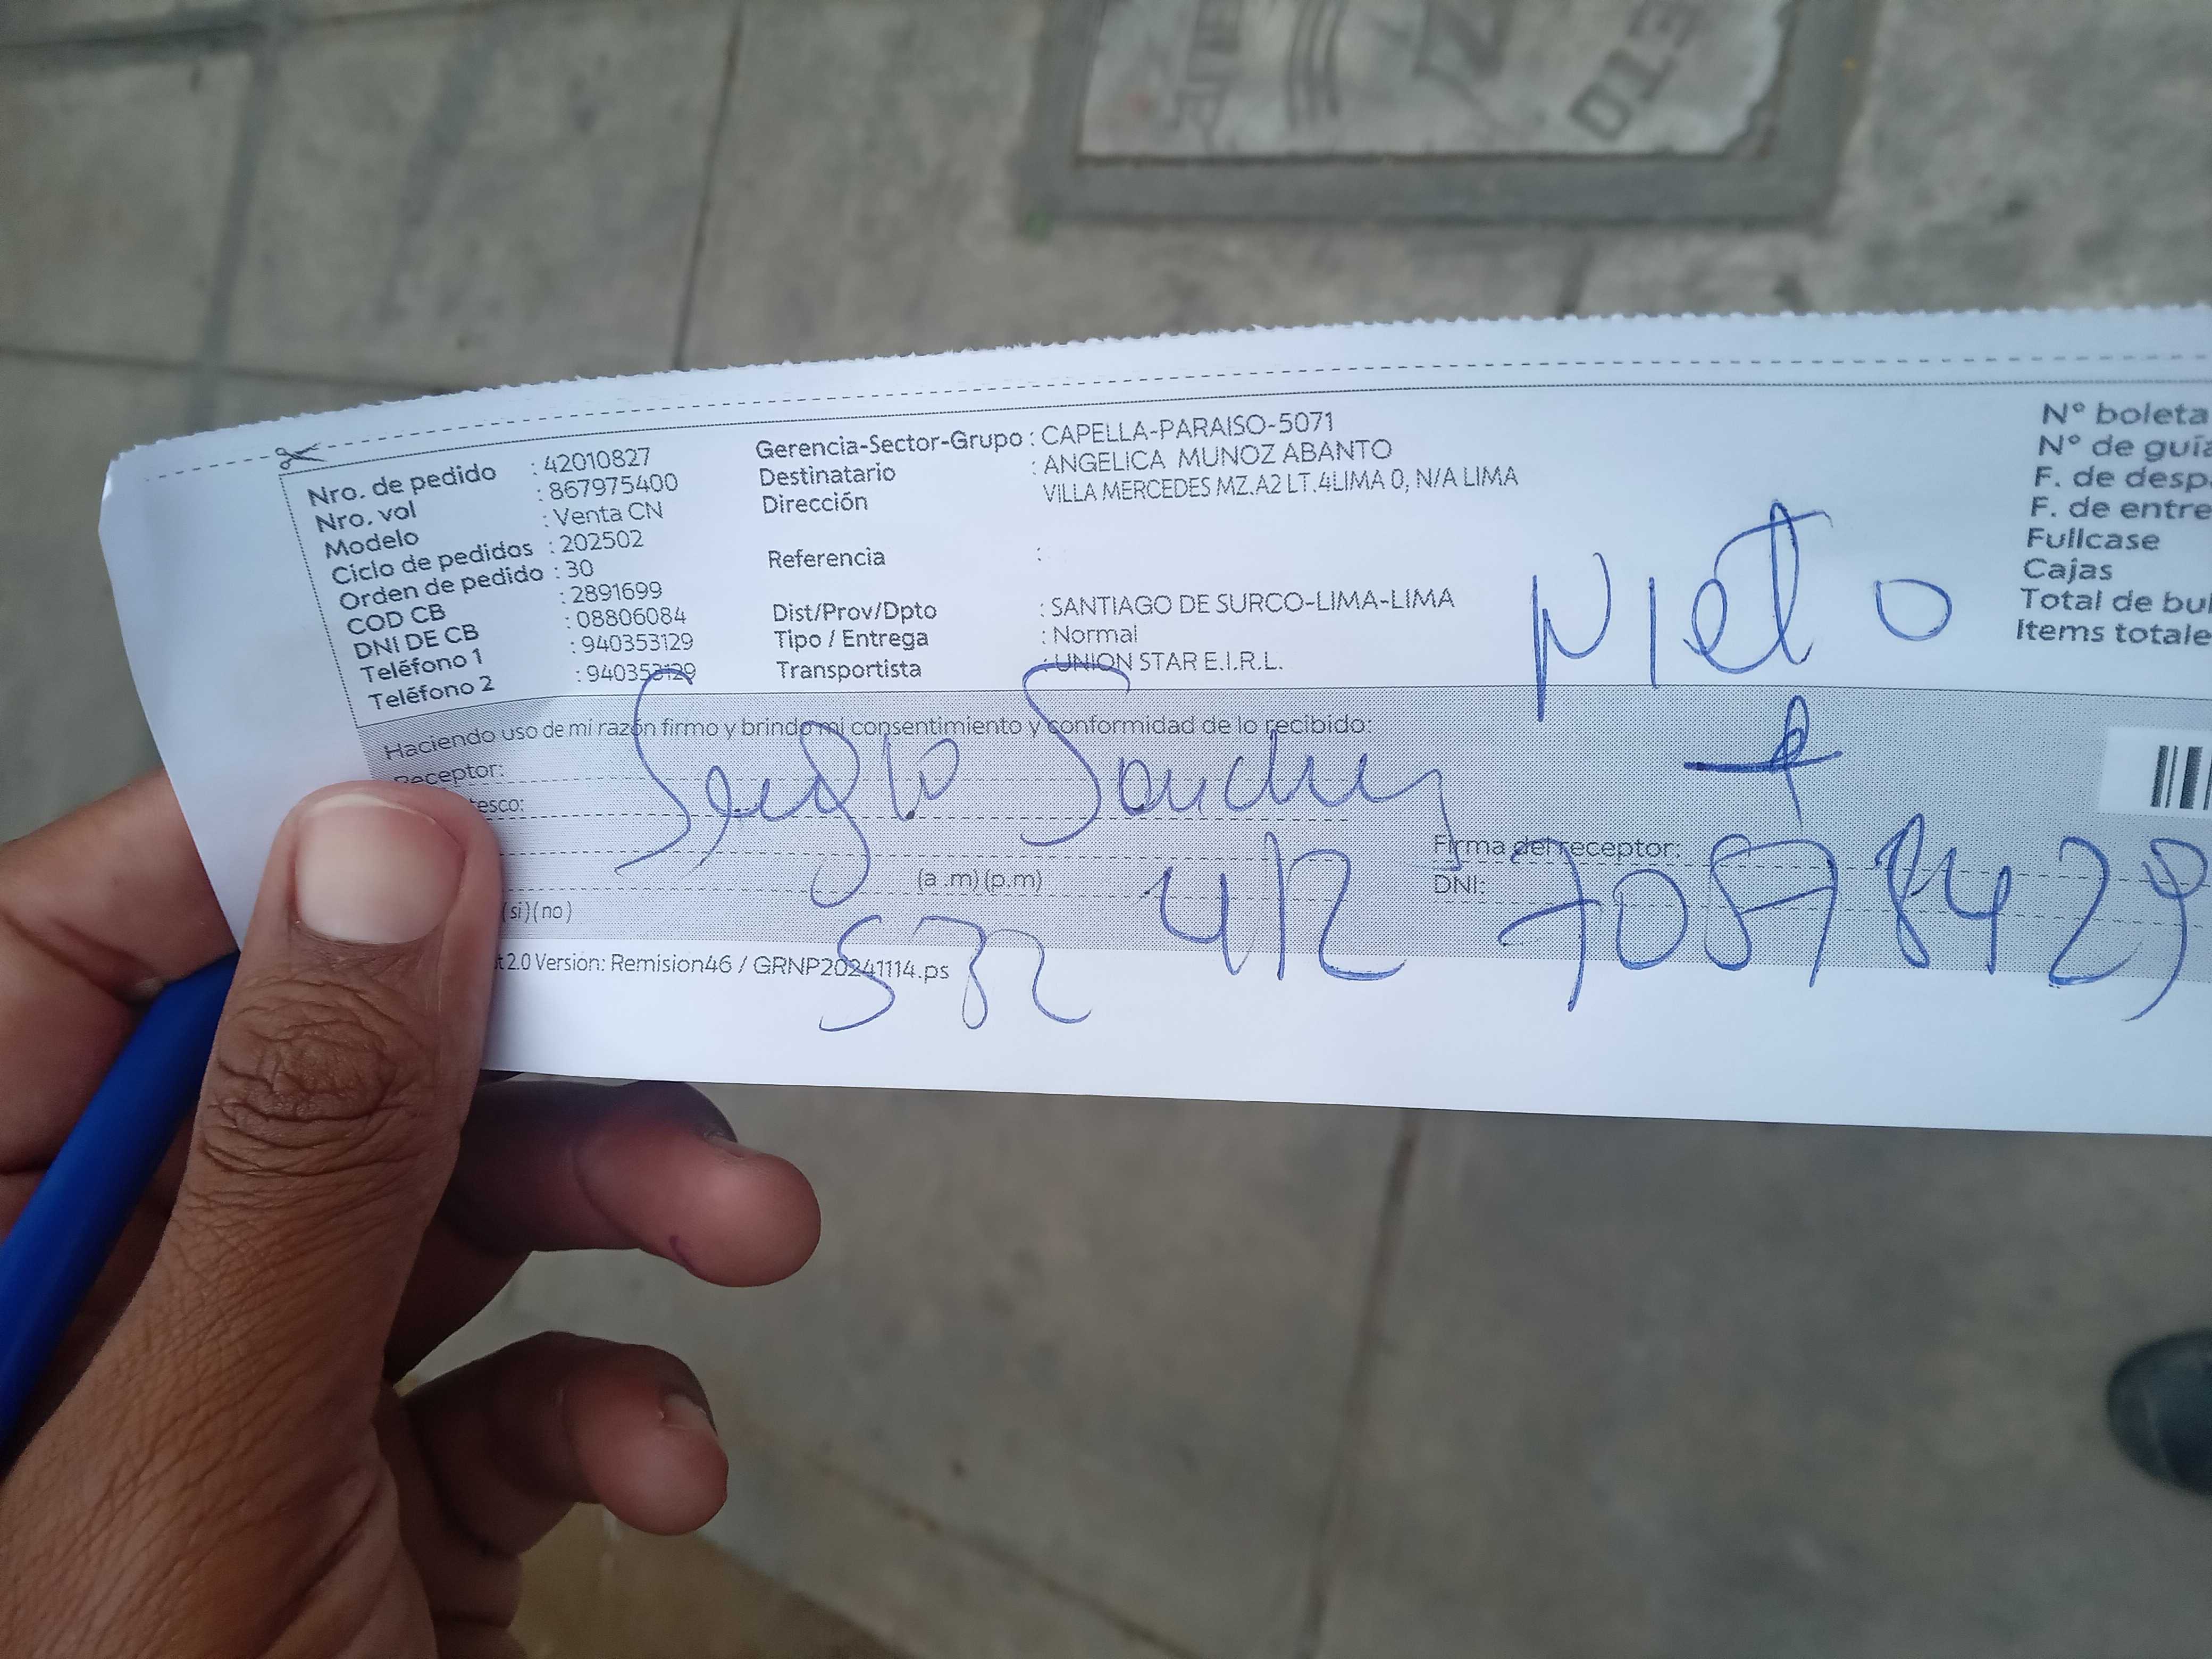 Nro. de pedido : 42010827
Nro. vol : 867975400
Modelo : Venta CN
Ciclo de pedidos : 202502
Orden de pedido : 30
COD CB : 2891699
DNI DE CB : 08806084
Teléfono 1 : 940353129
Teléfono 2 : 940353129
Gerencia-Sector-Grupo : CAPELLA-PARAISO-5071
Destinatario : ANGELICA MUNOZ ABANTO
Dirección VILLA MERCEDES MZ.A2 LT.4LIMA 0, N/A LIMA
Referencia :
Dist/Prov/Dpto : SANTIAGO DE SURCO-LIMA-LIMA
Tipo / Entrega : Normal
Transportista : UNION STAR E.I.R.L.
Nº boleta
Nº de guía
F. de desp
F. de entre
Fullcase
Cajas
Total de bul
Items totale
Nieto
Haciendo uso de mi razón firmo y brindo mi consentimiento y conformidad de lo recibido:
Receptor:
Sergio Sanchez
tesco:
Firma del receptor:
(a .m) (p.m)
DNI:
412
(si) (no)
t 2.0 Version: Remision46 / GRNP20241114.ps